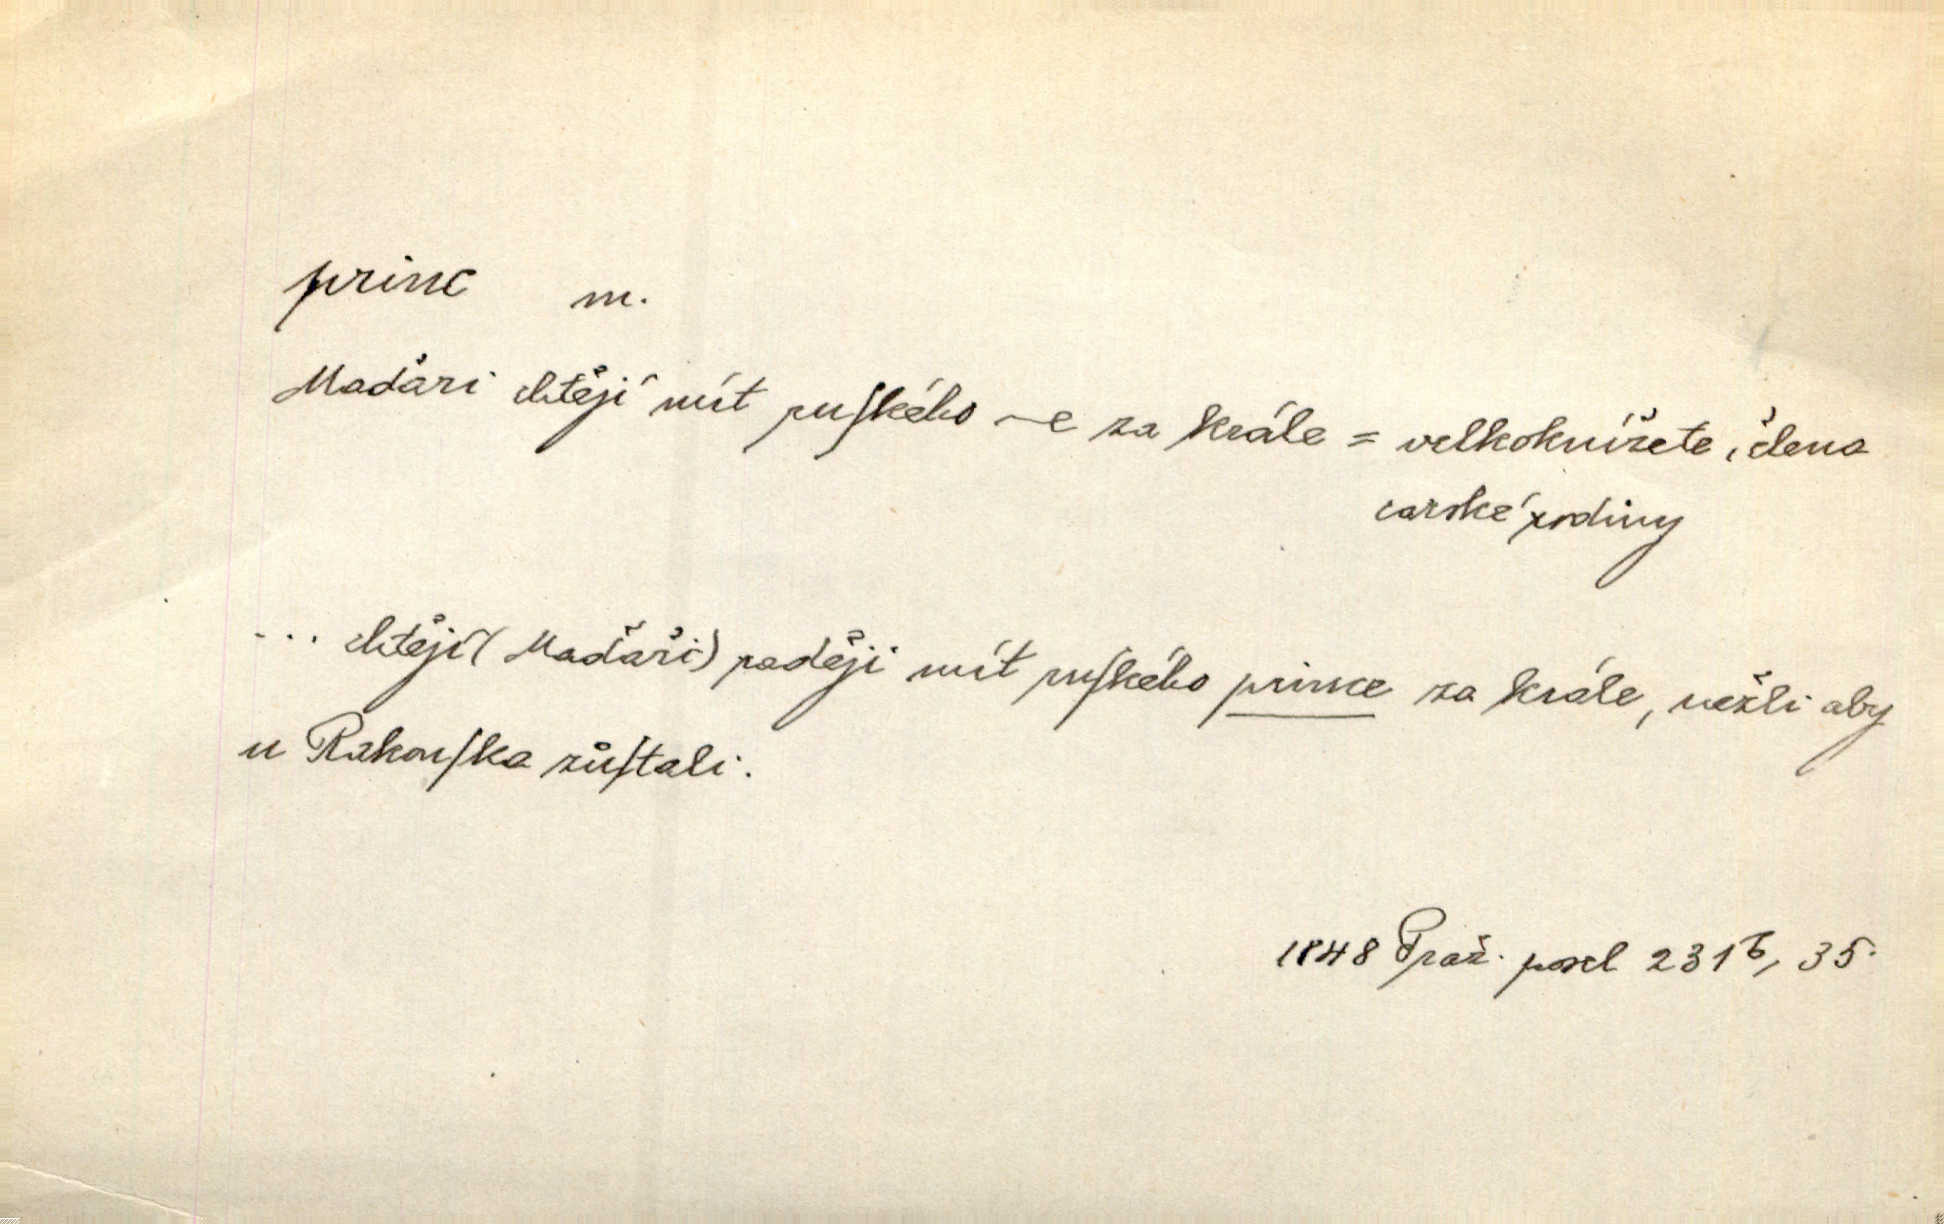 princ m.
Maďaři chtějí mít ruſkého ~e za krále = velkoknížete, člena
carské rodiny
... chtějí (Maďaři) raději mít ruſkého prince za krále, nežli aby
u Rakouſka zůſtali.
1848 Praž. posel 231b, 35.